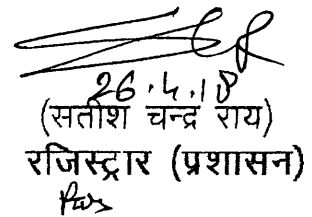 26.4.18
(सतीश चन्द्र राय)
रजिस्ट्रार (प्रशासन)